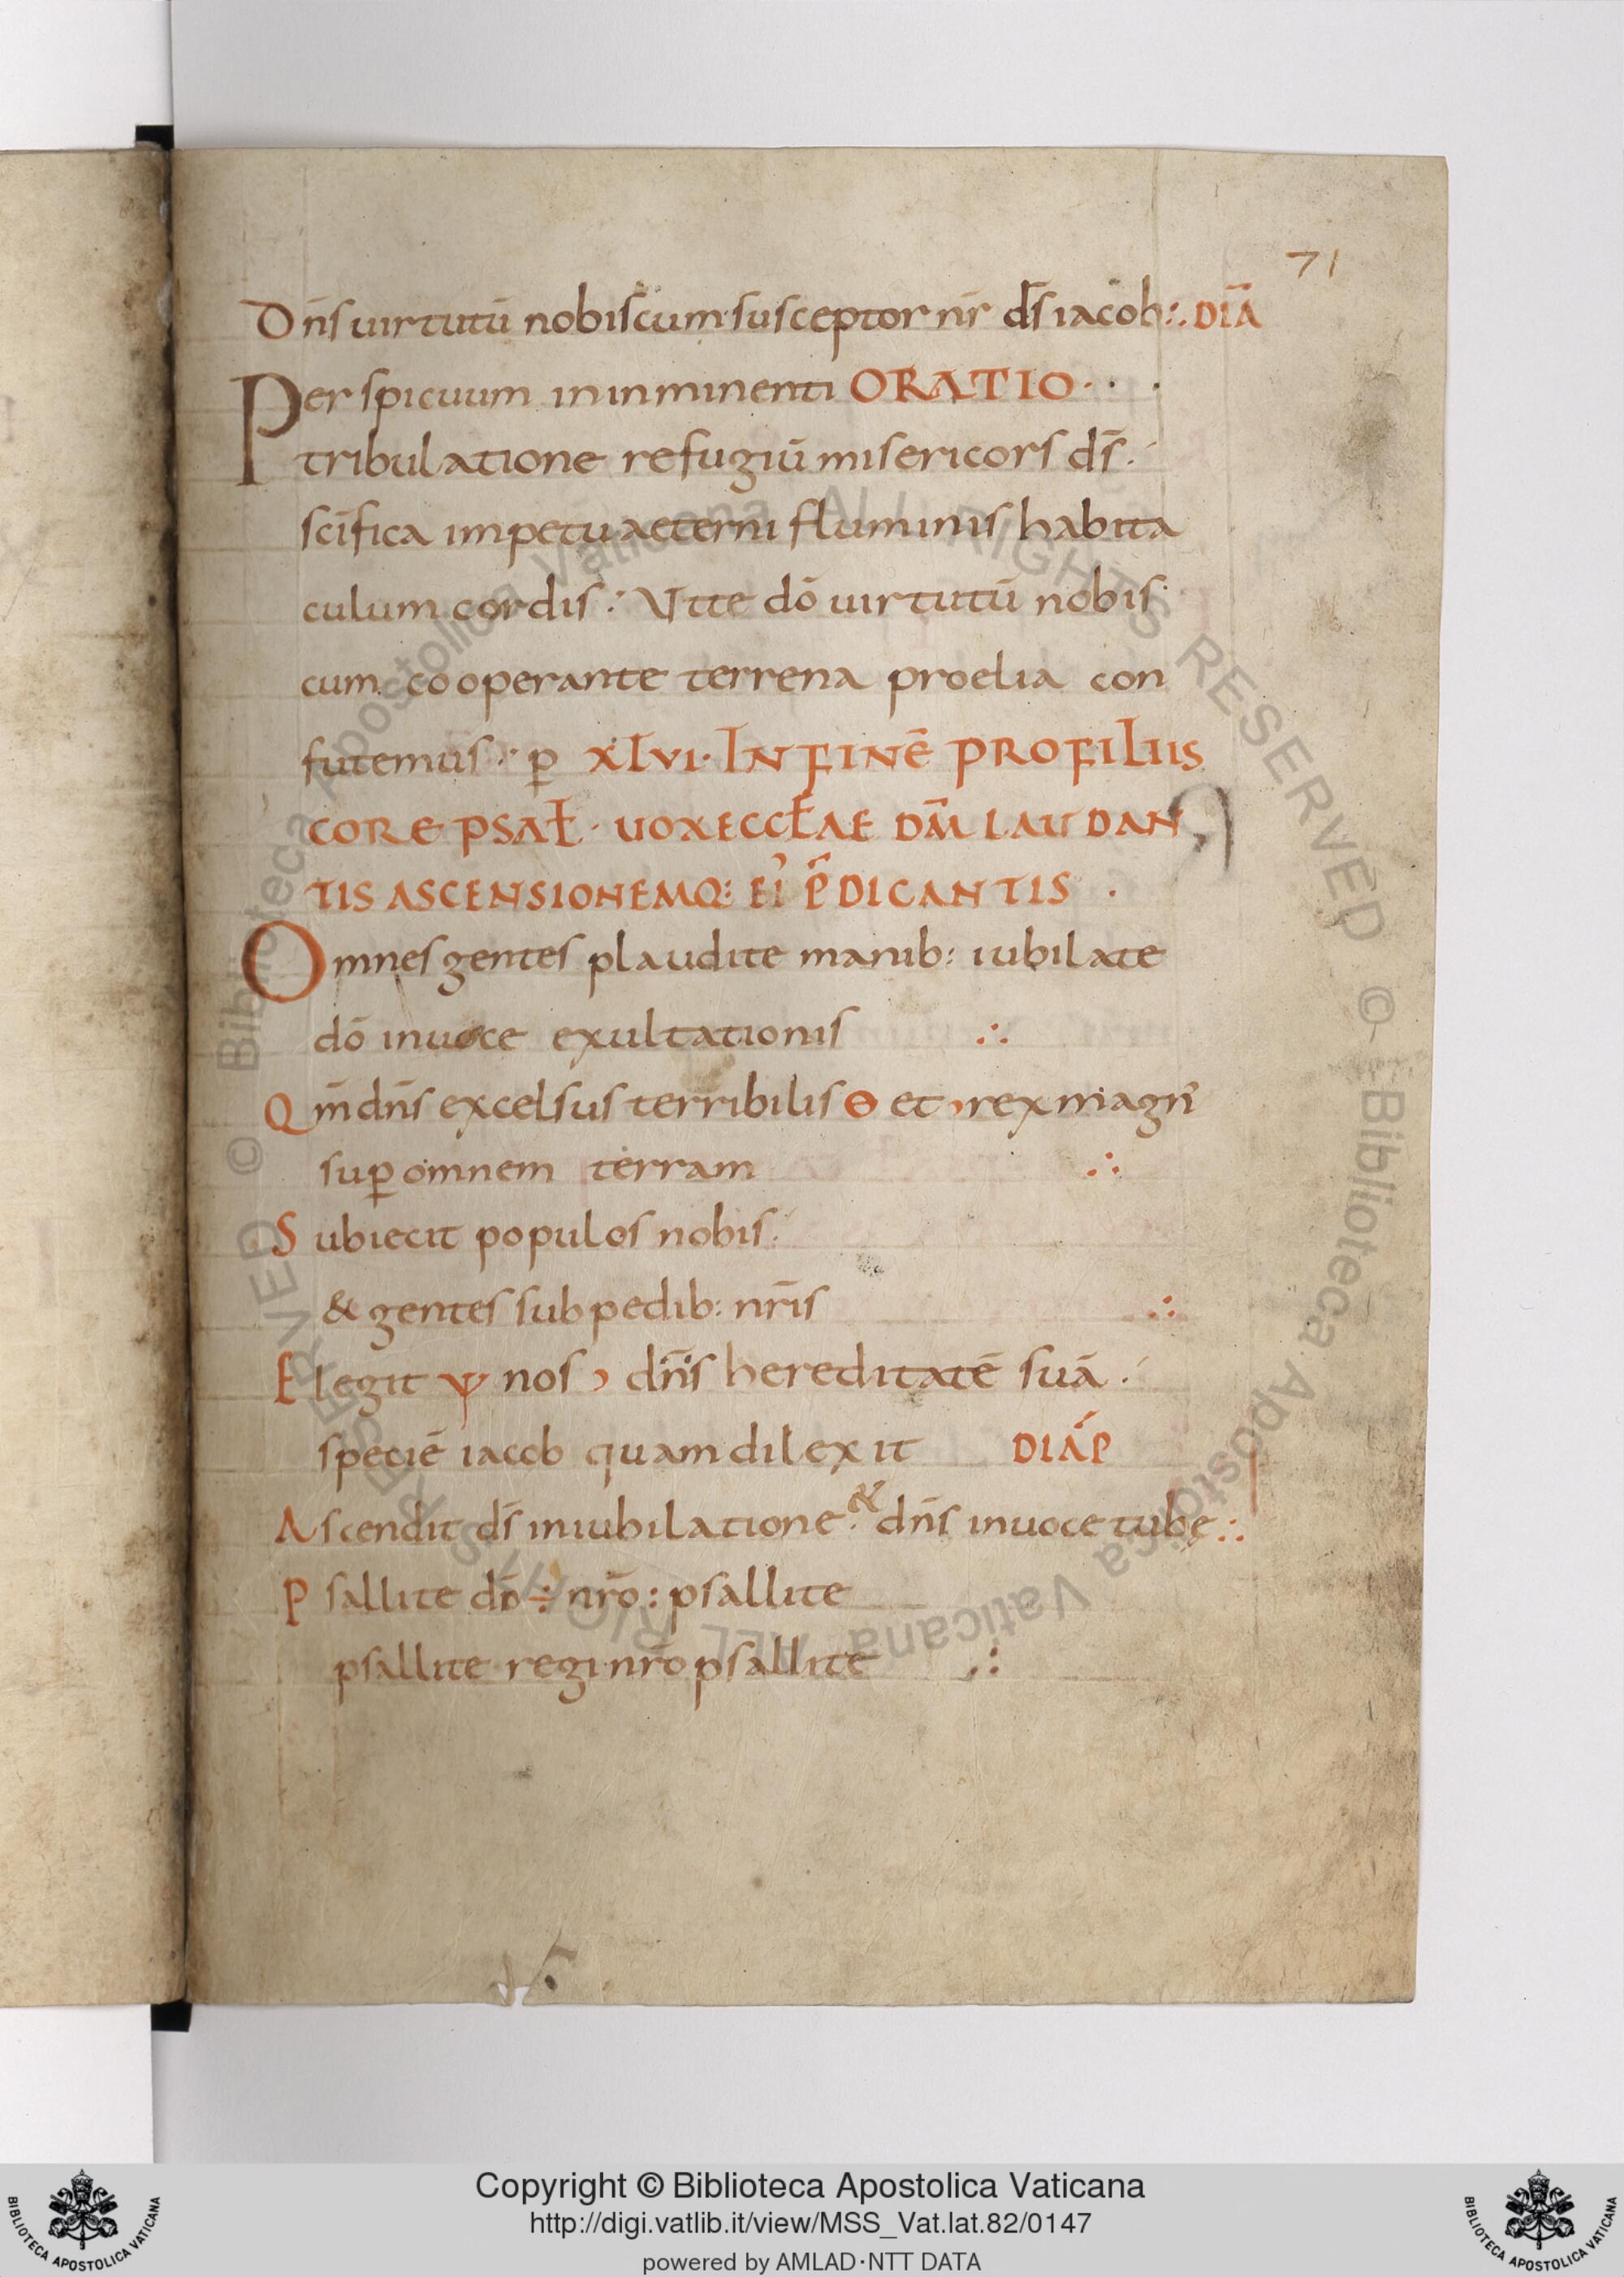 71
Dn̄s uirtutū nobiscum susceptor nr̄ ds̄ iacob:. DIĀ
Perspicuum in inminenti ORATIO
tribulatione refugiū misericors ds̄.
sc̄ifica impetu aeterni fluminis habita
culum cordis:· Ut te dō uirtutū nobis
cum cooperante terrena proelia con
futemus:· ꝑ XLVI· IN FINĒ PRO FILIIS
CORE PSAŁ· UOX ECCŁAE DM̄ LAUDAN
TIS ASCENSIONEMQ: EI᾽ P̄DICANTIS ·
Omnes gentes plaudite manib: iubilate
dō in uoce exultationis ∴
Qm̄ dn̄s excelsus terribilis Θ et rex magn᾽
suꝑ omnem terram ∴
Subiecit populos nobis.
& gentes sub pedib: nr̄is ∴
Elegit ψ nos dn̄s hereditatē suā.
speciē iacob quam dilexit DIÁP
Ascendit ds̄ in iubilatione. dn̄s in uoce tubę ∴
Psallite dō ÷ nr̄o : psallite
psallite regi nr̄o psallite ∴
Biblioteca Apostolica Vaticana ALL RIGHTS RESERVED © Biblioteca Apostolica Vaticana ALL RIGHTS RESERVED ©
Copyright © Biblioteca Apostolica Vaticana
http://digi.vatlib.it/view/MSS_Vat.lat.82/0147
powered by AMLAD·NTT DATA
BIBLIOTECA APOSTOLICA VATICANA
BIBLIOTECA APOSTOLICA VATICANA